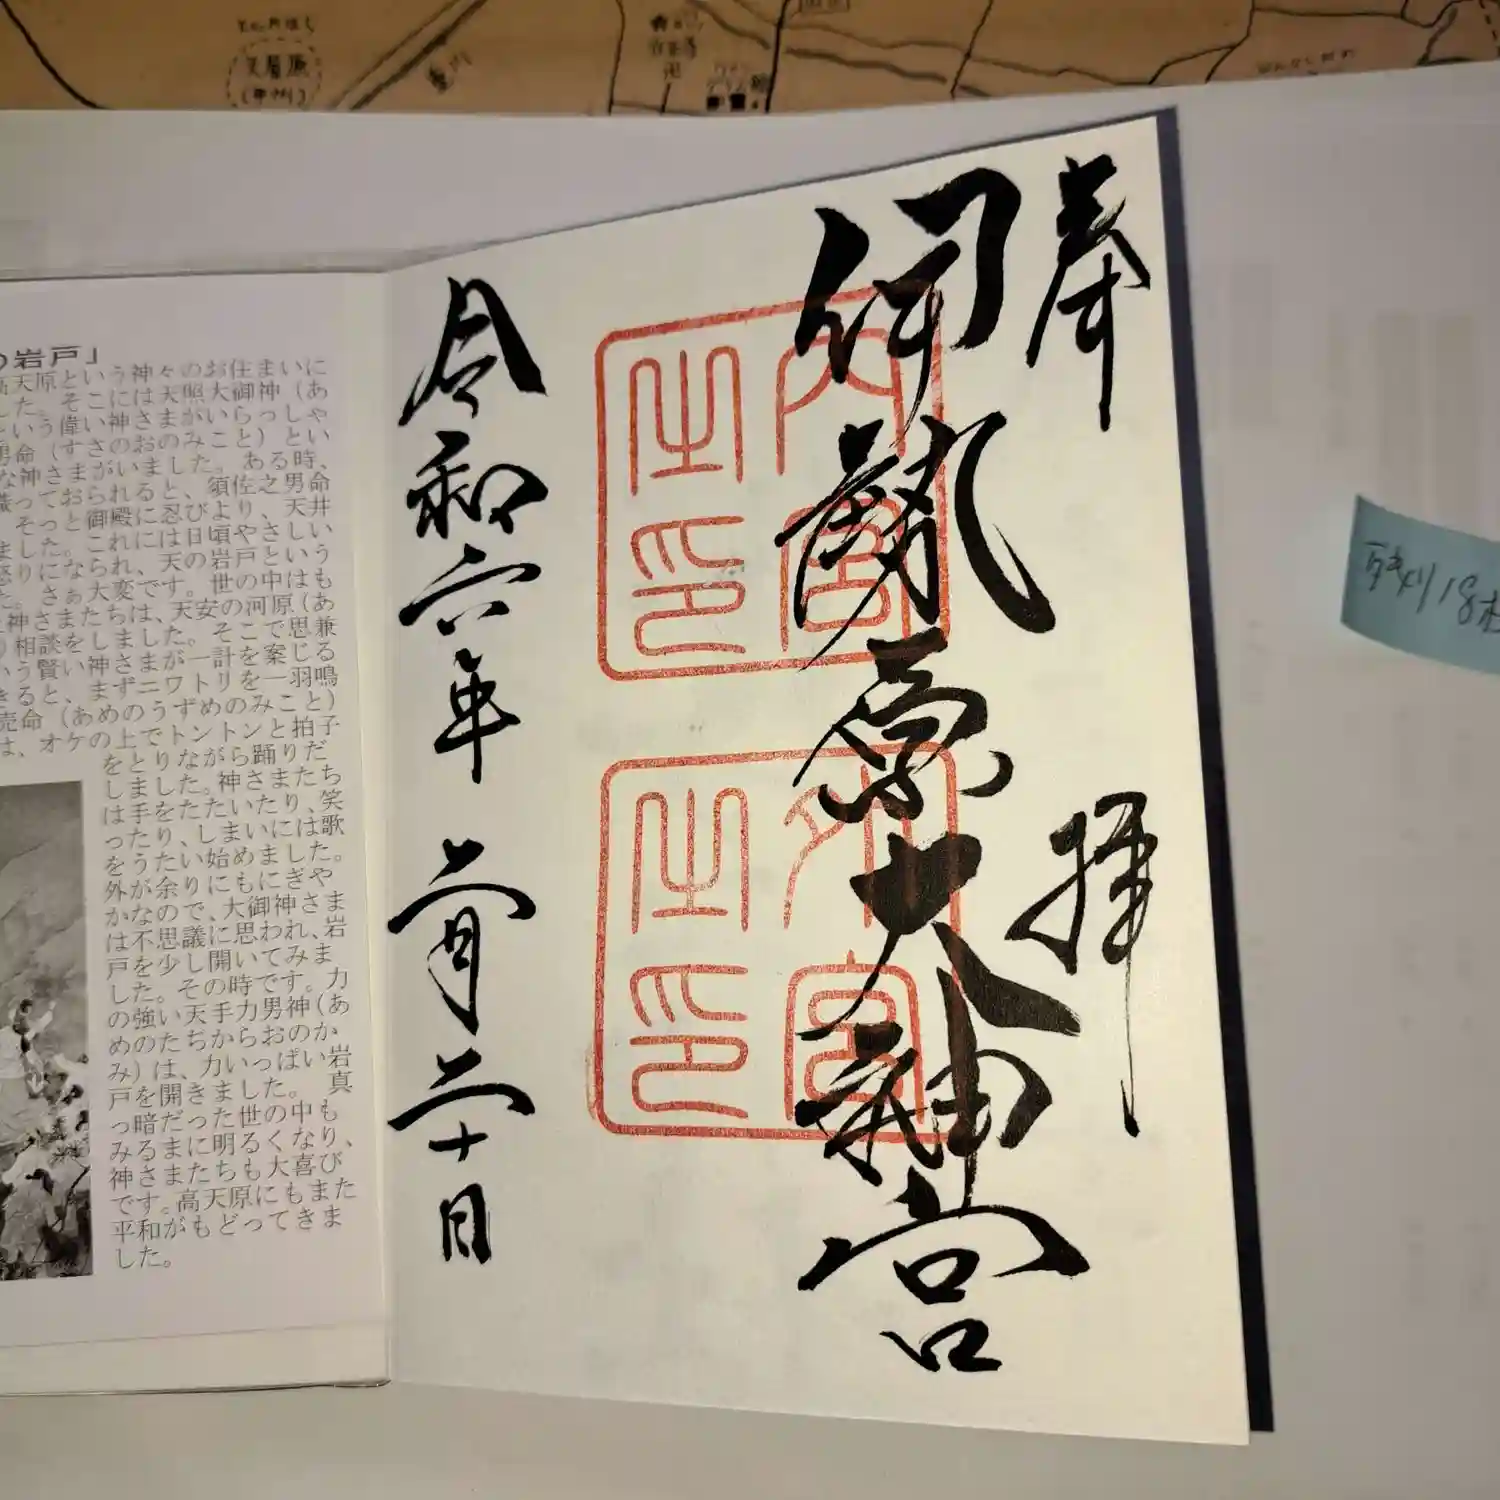 奉拝
伊勢原大神宮
内宮之印
外宮之印
令和六年 二月二十日
の岩戸」
高天原という神々のお住まいに
した。そこには天照大御神（あ
という偉い神さまがいらっしゃ
男命（すさのおのみこと）とい
な神さまがいました。ある時、
織っておられると、須佐之男命
そっと御殿に忍びより、天井
ました。これには日頃やさしい
怒りになられ、天の岩戸という
た。さぁ大変です。世の中はも
神さまたちは、天安の河原（あ
）相談をしました。そこで思兼
いう賢い神さまが一計を案じる
きると、まずニワトリを一羽鳴
売命（あめのうずめのみこと）
は、オケの上でトントンと拍子
をとりながら踊りだ
しました。神さまたち
は手をたたいたり、笑
ったり、しまいには歌
をうたい始めました。
外が余りにもにぎや
かなので、大御神さま
は不思議に思われ、岩
戸を少し開いてみま
した。その時です。力
の強い天手力男神（あ
めのたぢからおのか
み）は、力いっぱい岩
戸を開きました。 真
っ暗だった世の中も
みるまに明るくなり、
神さまたちも大喜び
です。高天原にもまた
平和がもどってきま
した。